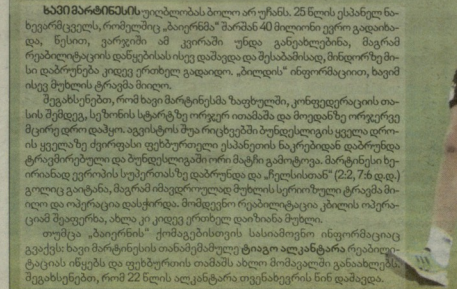 ხავი მარტინესის უიღბლობას ბოლო არ უჩანს. 25 წლის ესპანელ ნა-
ხევარმცველს, რომელშიც „ბაიერნმა“ შარშან 40 მილიონი ევრო გადაიხა-
და, წესით, ვარჯიში ამ კვირაში უნდა განეახლებინა, მაგრამ
რეაბილიტაციის დაწყებისას ისევ დაშავდა და შესაბამისად, მინდორზე მი-
სი დაბრუნება კიდევ ერთხელ გადაიდო. „ბილდის“ ინფორმაციით, ხავიმ
ისევ მუხლის ტრავმა მიიღო.
შეგახსენებთ, რომ ხავი მარტინესმა ზაფხულში, კონფედერაციის თა-
სის შემდეგ, სეზონის სტარტზე ორჯერ ითამაშა და მოედანზე ორჯერვე
მცირე დრო დაჰყო. აგვისტოს შუა რიცხვებში ბუნდესლიგის ყველა დრო-
ის ყველაზე ძვირფასი ფეხბურთელი ესპანეთის ნაკრებიდან დაბრუნდა
ტრავმირებული და ბუნდესლიგაში ორი მატჩი გამოტოვა. მარტინესი ხე-
ირიანად ევროპის სუპერთასზე დაბრუნდა და „ჩელსისთან“ (2:2, 7:6 დ.დ.)
გოლიც გაიტანა, მაგრამ იმავდროულად მუხლის სერიოზული ტრავმა მი-
იღო და ოპერაცია დასჭირდა. მომდევნო რეაბილიტაცია კბილის ოპერა-
ციამ შეაფერხა, ახლა კი კიდევ ერთხელ დაიზიანა მუხლი.
თუმცა „ბაიერნის“ ქომაგებისთვის სასიამოვნო ინფორმაციაც
გვაქვს: ხავი მარტინესის თანამემამულე ტიაგო ალკანტარა რეაბილი-
ტაციას იწყებს და ფეხბურთის თამაშს ახლო მომავალში განაახლებს.
შეგახსენებთ, რომ 22 წლის ალკანტარა თვენახევრის წინ დაშავდა.